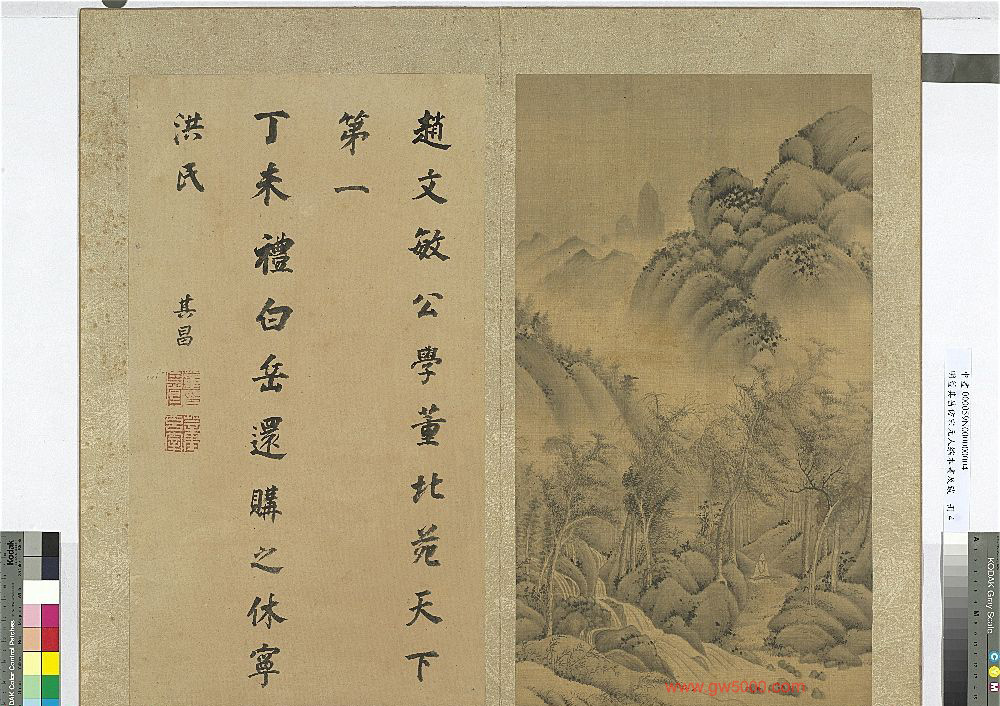 趙文敏公學董北苑天下
第一
丁未禮白岳還購之休寧
洪氏
其昌
www.gw5000.com
KODAK Gray Scale
Kodak
KODAK Color Control Patches